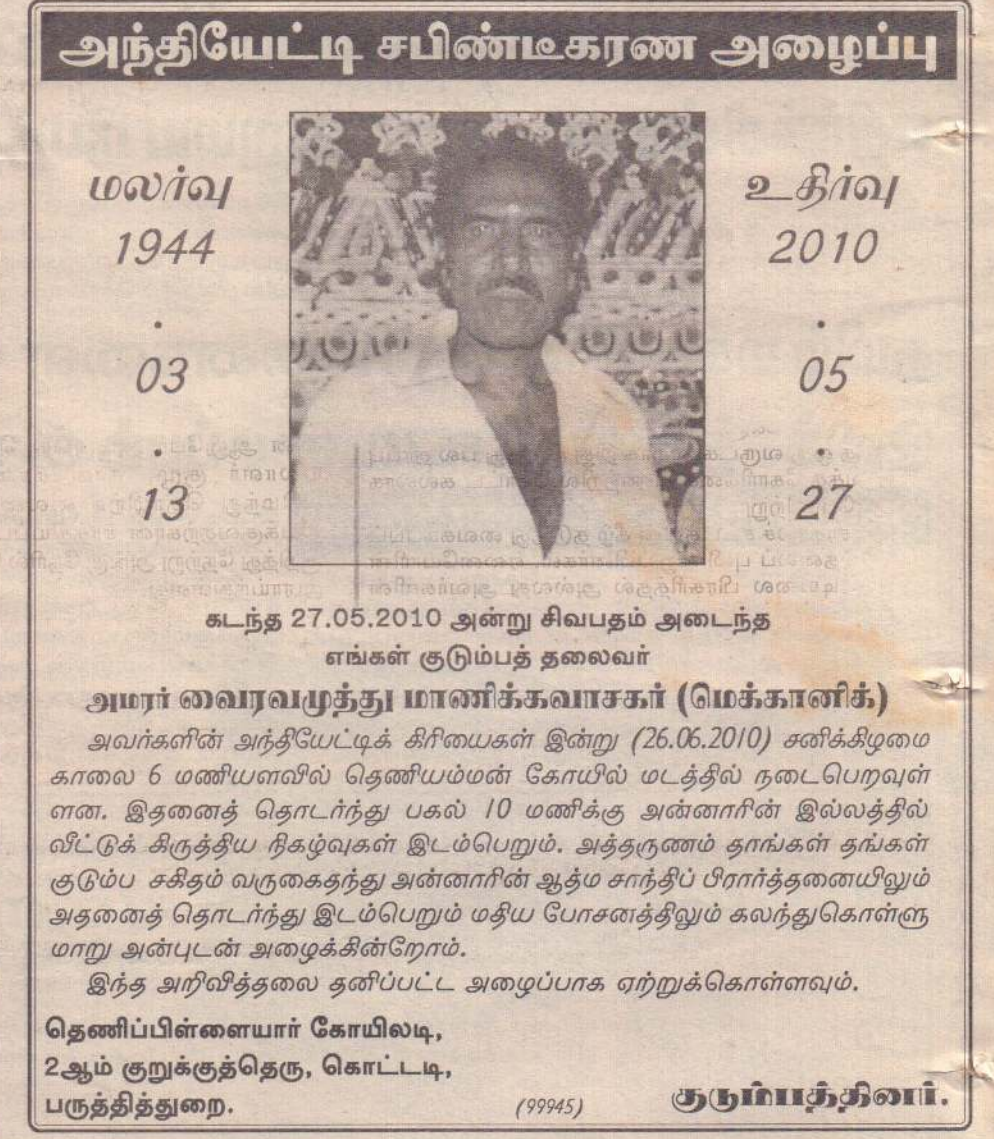 அந்தியேட்டி சபிண்டீகரண அழைப்பு
மலர்வு
1944
.
03
.
13
உதிர்வு
2010
.
05
.
27
கடந்த 27.05.2010 அன்று சிவபதம் அடைந்த
எங்கள் குடும்பத் தலைவர்
அமரர் வைரவமுத்து மாணிக்கவாசகர் (மெக்கானிக்)
அவர்களின் அந்தியேட்டிக் கிரியைகள் இன்று (26.06.2010) சனிக்கிழமை
காலை 6 மணியளவில் தெணியம்மன் கோயில் மடத்தில் நடைபெறவுள்
ளன. இதனைத் தொடர்ந்து பகல் 10 மணிக்கு அன்னாரின் இல்லத்தில்
வீட்டுக் கிருத்திய நிகழ்வுகள் இடம்பெறும். அத்தருணம் தாங்கள் தங்கள்
குடும்ப சகிதம் வருகைதந்து அன்னாரின் ஆத்ம சாந்திப் பிரார்த்தனையிலும்
அதனைத் தொடர்ந்து இடம்பெறும் மதிய போசனத்திலும் கலந்துகொள்ளு
மாறு அன்புடன் அழைக்கின்றோம்.
இந்த அறிவித்தலை தனிப்பட்ட அழைப்பாக ஏற்றுக்கொள்ளவும்.
தெணிப்பிள்ளையார் கோயிலடி,
2ஆம் குறுக்குத்தெரு, கொட்டடி,
பருத்தித்துறை.
(99945)
குடும்பத்தினர்.